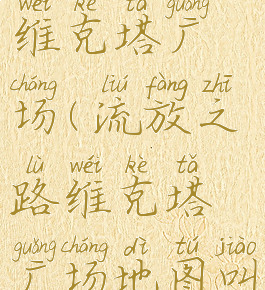 wéi kè tǎ guǎng
维克塔广
chǎng liú fàng zhī
场(流放之
lù wéi kè tǎ
路维克塔
guǎng chǎng dì tú jiào
广场地图叫